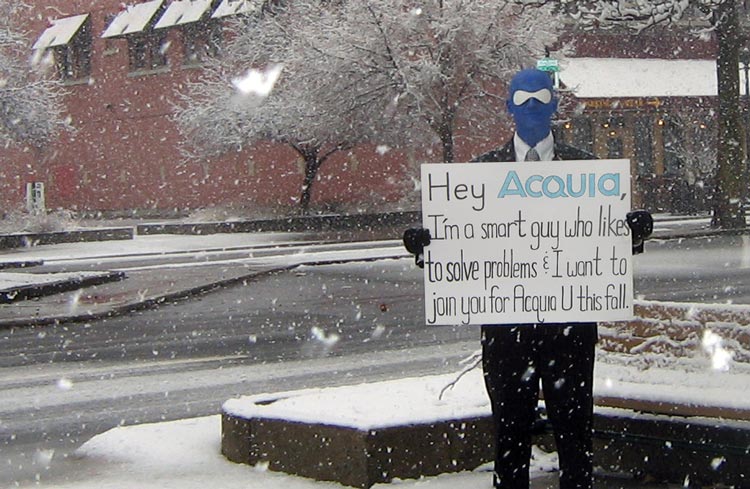 Hey ACQUIA,
I'm a smart guy who likes
to solve problems & I want to
join you for Acquia U this fall.